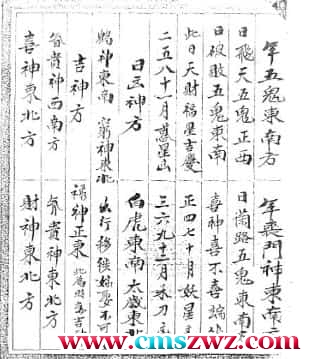 年五鬼東南方
日飛天五鬼正西
日破敗五鬼東南
此日天財福星吉慶
二五八十一月惑星山
日凶神方
東南 窮神東北
吉神方
貴神西南方
喜神東北方
年喪門神東南
日攔路五鬼東南
喜神喜不喜
正四七十月妖星
三六九十二月禾刀
白虎東南 太歲東北
出行移徙
祿神正東
貴神東北方
財神東北方
www.cmszwz.com